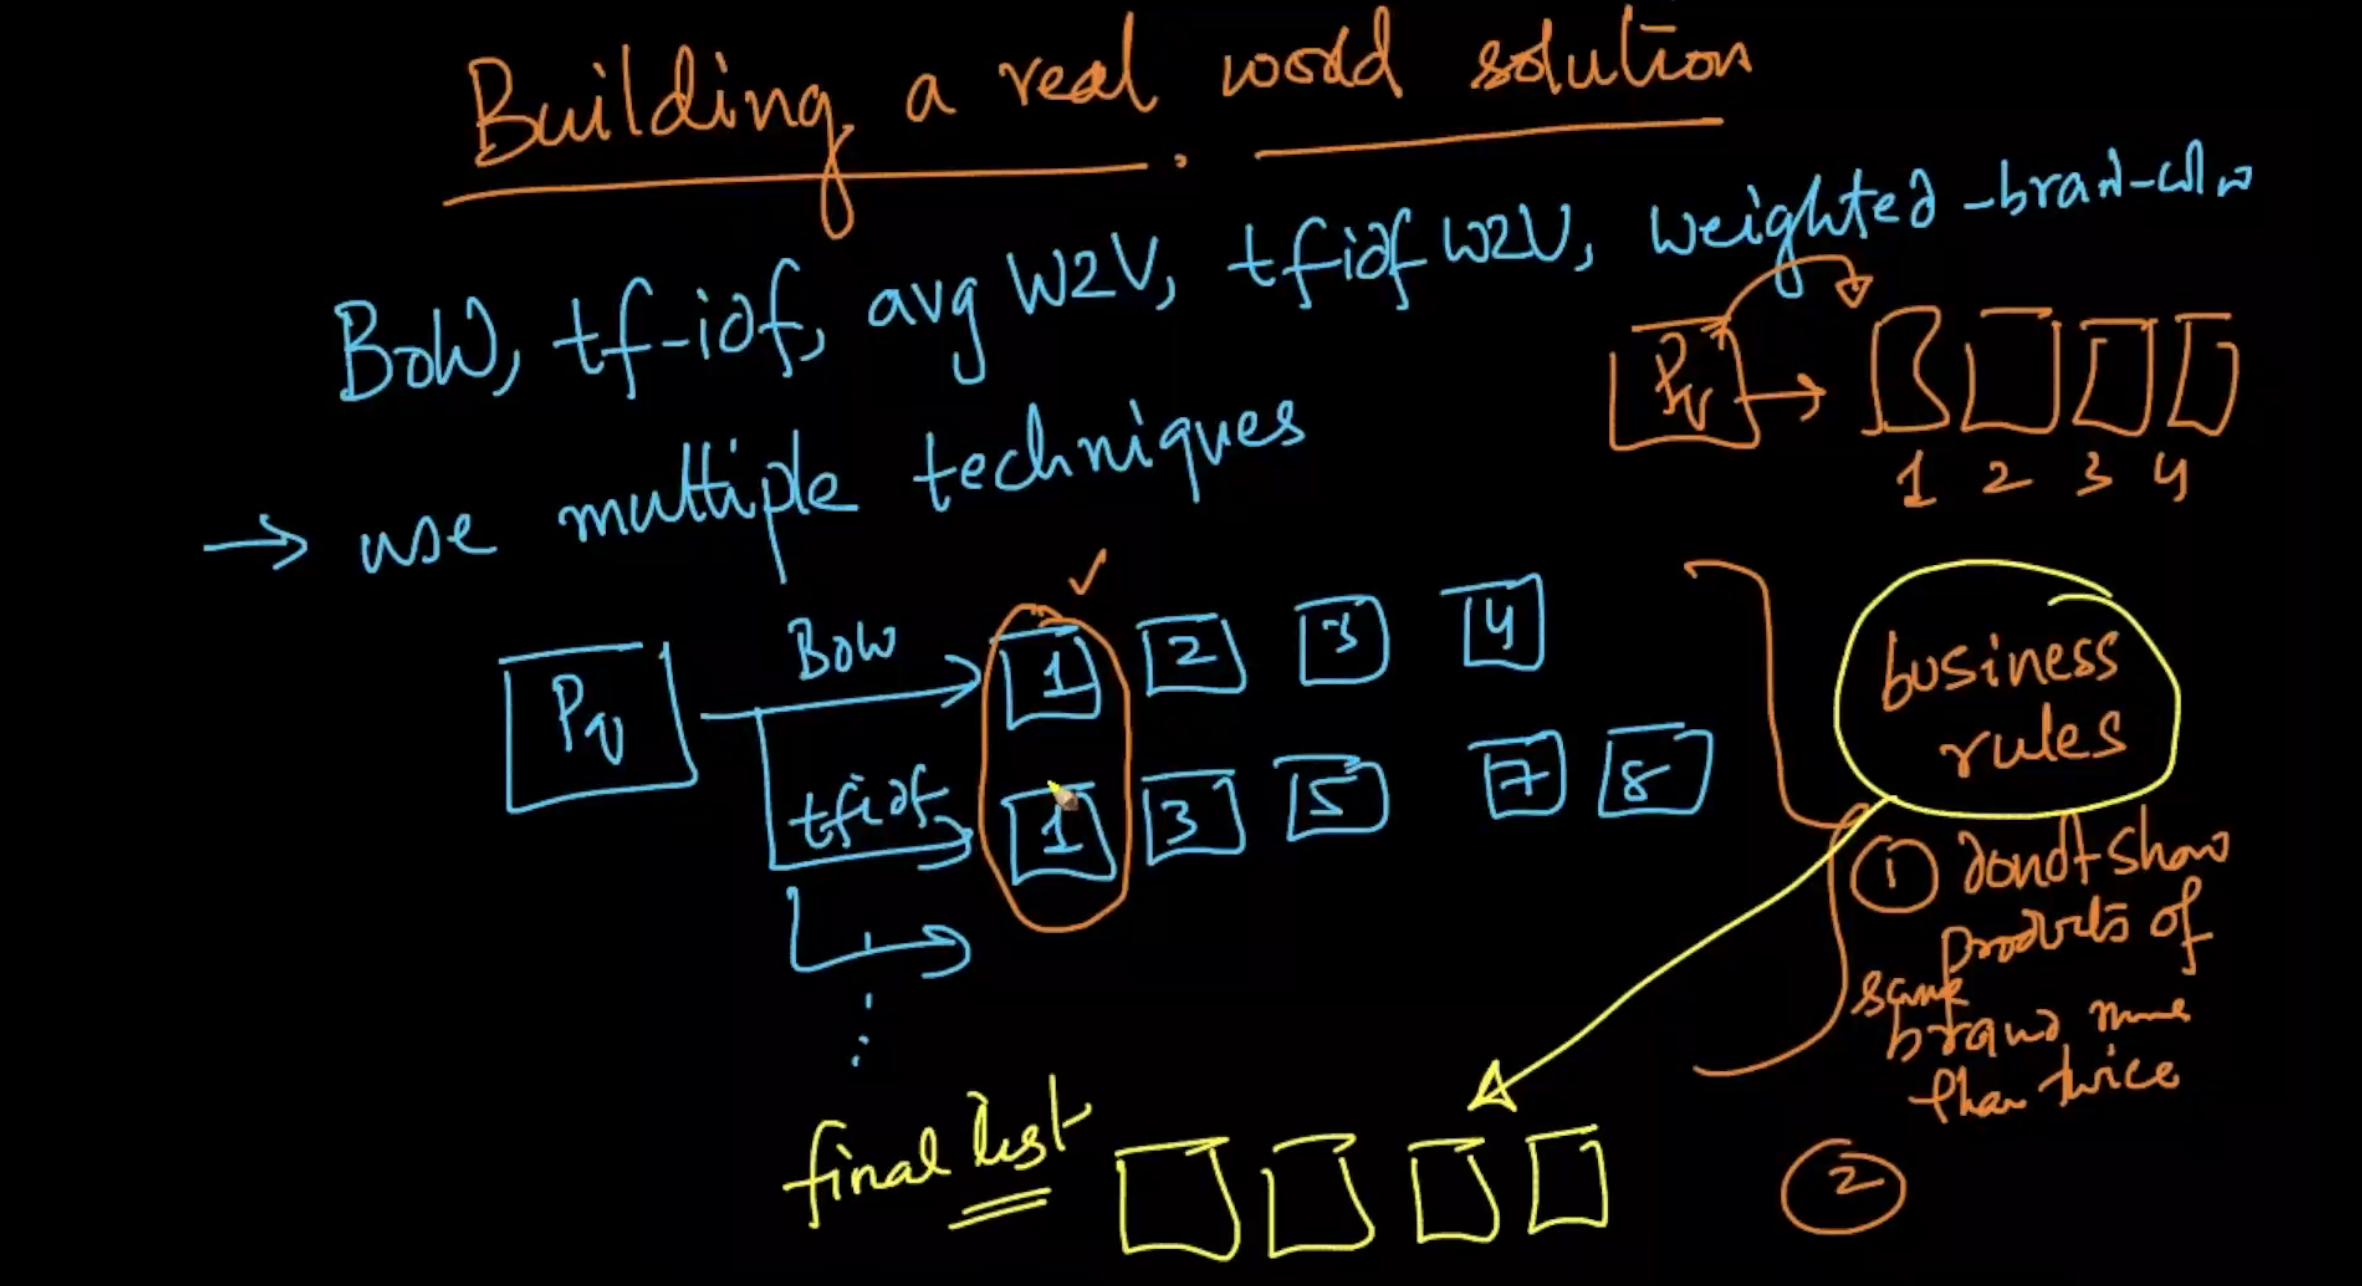 Building a real world solution
BoW, tf-idf, avg W2V, tfidf W2V, weighted-brand-color
Pq
1 2 3 4
→ use multiple techniques
Pq
BoW
1 2 3 4
tfidf
1 3 5 7 8
business
rules
① dont show
products of
same
brand more
than twice
②
final list